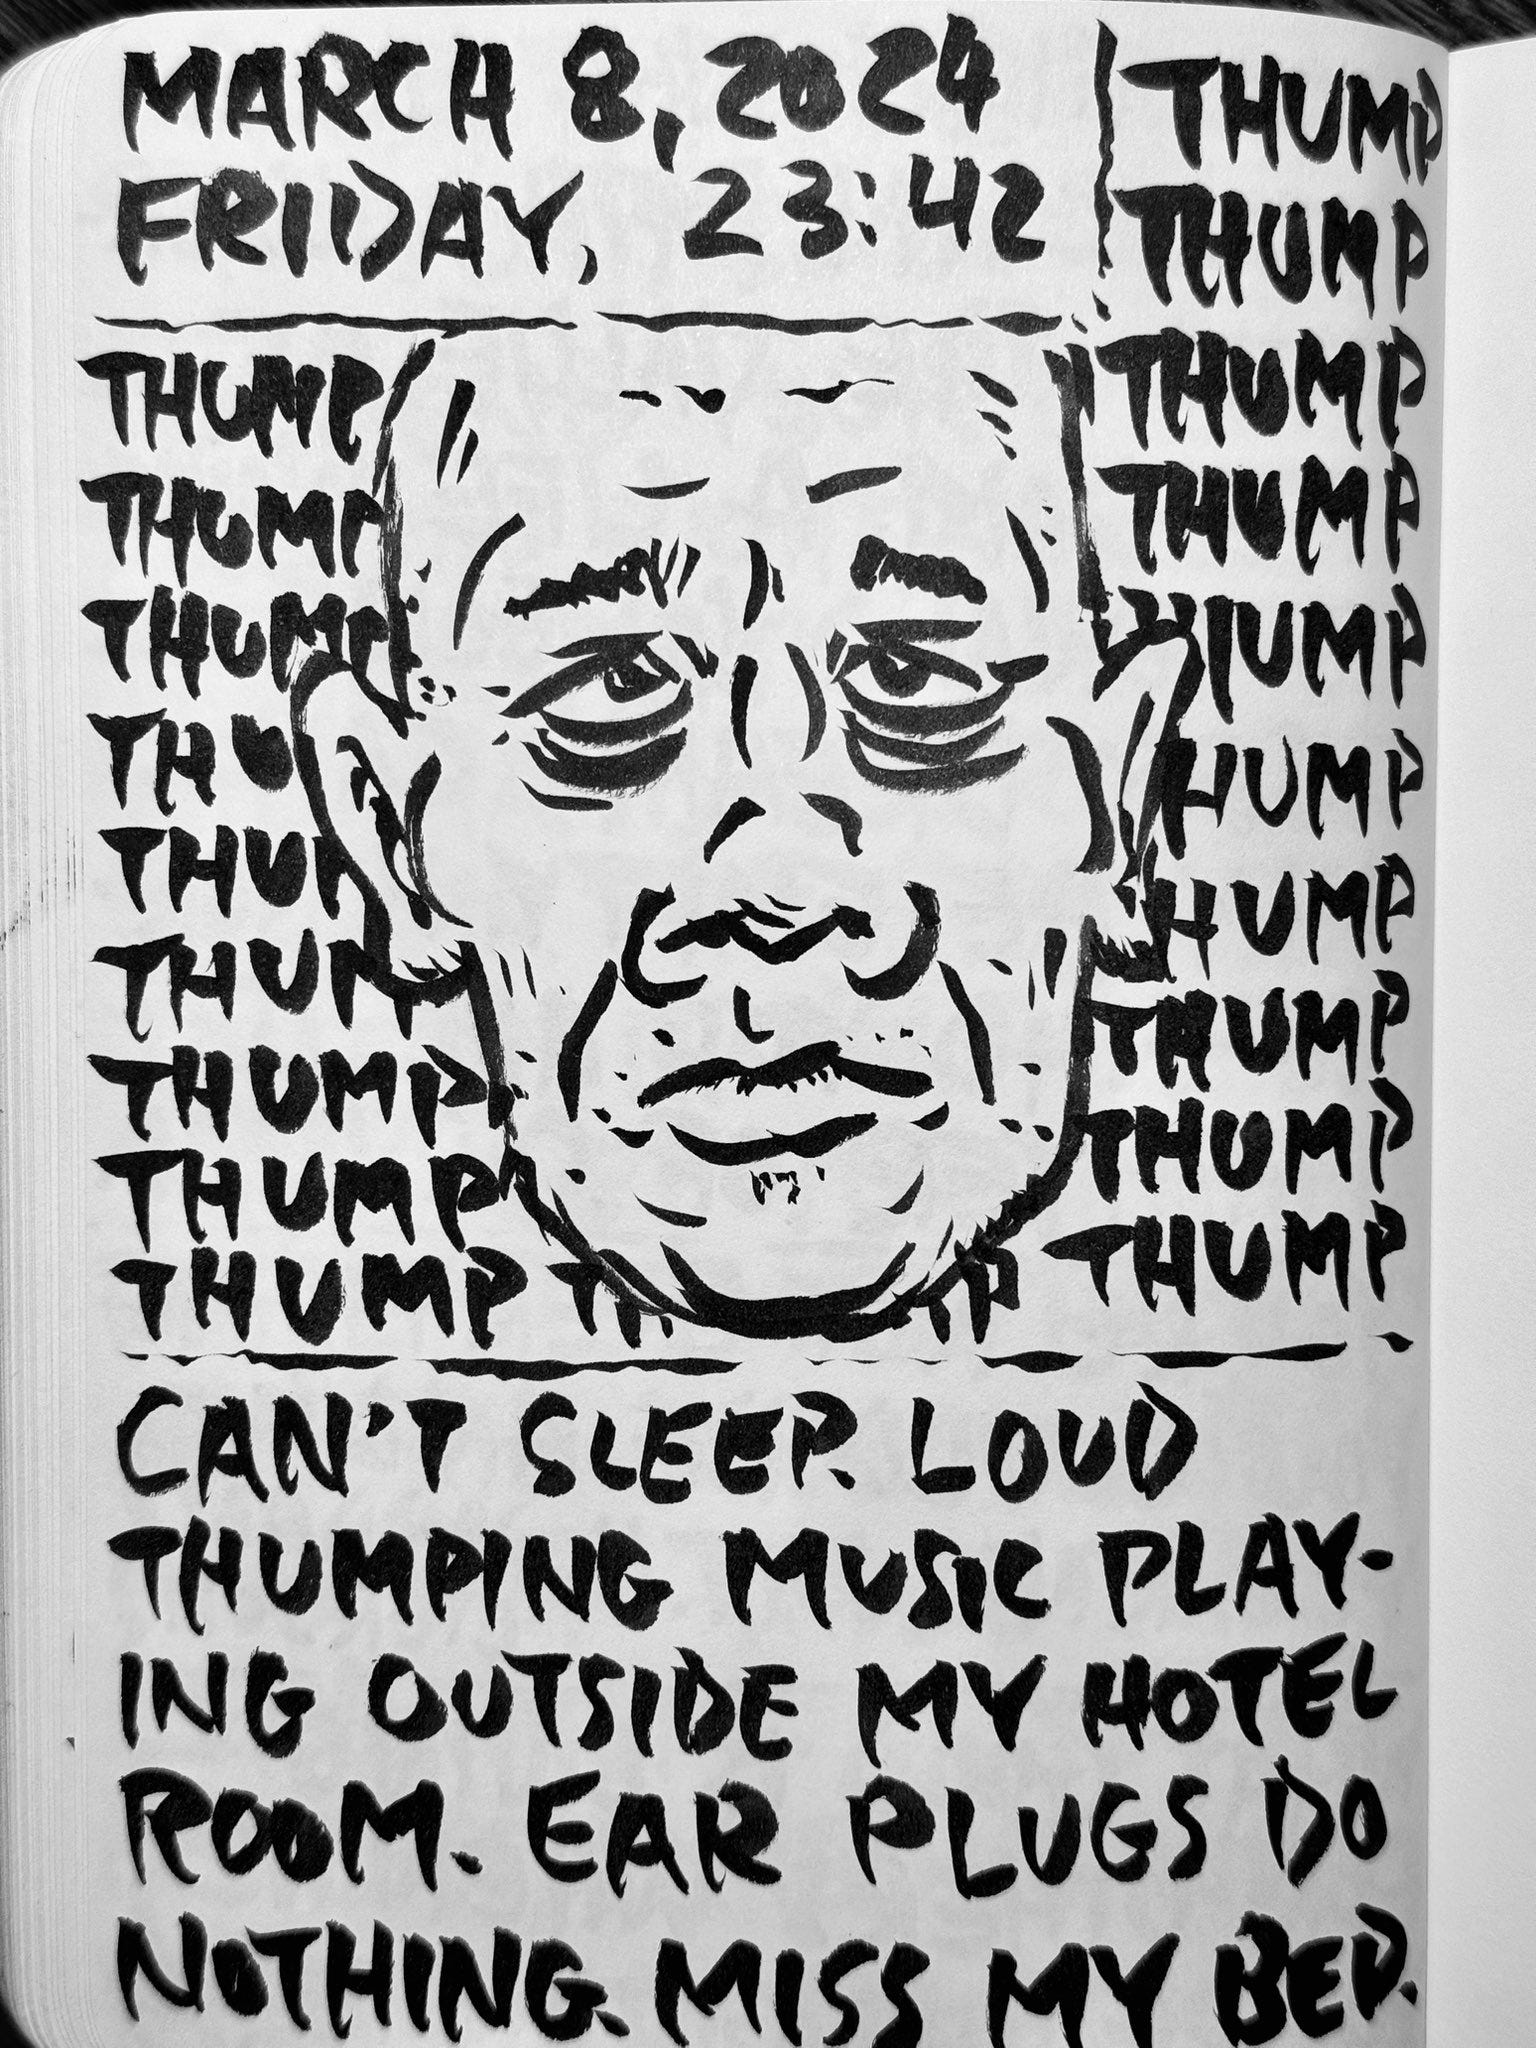 MARCH 8, 2024
FRIDAY, 23:42
THUMP
THUMP
THUMP
THU
THUM
THUM
THUMP
THUMP
THUMP TH
THUMP
THUMP
THUMP
THUMP
HUMP
HUMP
HUMP
THUMP
THUMP
P THUMP
CAN'T SLEEP. LOUD
THUMPING MUSIC PLAY-
ING OUTSIDE MY HOTEL
ROOM. EAR PLUGS DO
NOTHING. MISS MY BED.